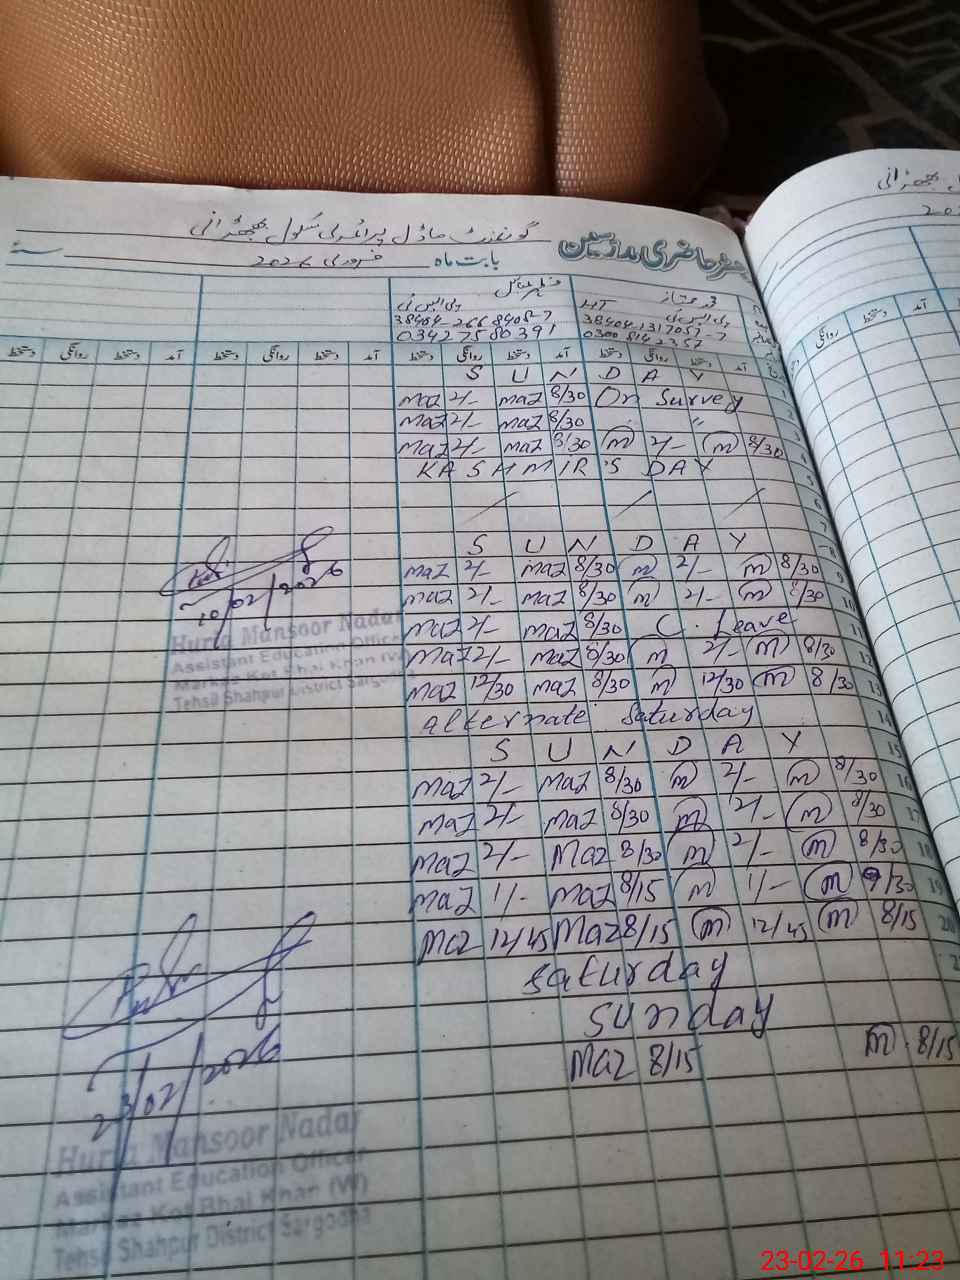 گورنمنٹ ماڈل پرائمری سکول
رجسٹر حاضری ملازمین
بابت ماہ فروری 2026 سنہ
HT
پی ایس ٹی
38404-1317057-7
0300 8142357
پی ایس ٹی
38404-2668408-7
0342 7580391
آمد دستخط روانگی دستخط آمد دستخط روانگی دستخط آمد دستخط روانگی دستخط آمد دستخط روانگی دستخط
S U N D A Y 1
maz 2/- maz 8/30 On Survey 2
maz 2/- maz 8/30 " 3
maz 2/- maz 8/30 m 2/- m 8/30 4
KASHMIR'S DAY 5
/ / / 6
7
S U N D A Y 8
maz 2/- maz 8/30 m 2/- m 8/30 9
maz 2/- maz 8/30 m 2/- m 8/30 10
maz 2/- maz 8/30 C. Leave 11
maz 2/- maz 8/30 m 2/- m 8/30 12
maz 12/30 maz 8/30 m 12/30 m 8/30 13
Alternate Saturday 14
S U N D A Y 15
maz 2/- maz 8/30 m 2/- m 8/30 16
maz 2/- maz 8/30 m 2/- m 8/30 17
maz 2/- Maz 8/30 m 2/- m 8/30 18
maz 1/- maz 8/15 m 1/- m 9/30 19
Maz 12/45 Maz 8/15 m 12/45 m 8/15 20
Saturday
Sunday
Maz 8/15 m 8/15
10/02/2026
Huria Mansoor Nadar
Assistant Education Officer
Markaz Kot Bhai Khan (W)
Tehsil Shahpur District Sargodha
23/02/2026
Huria Mansoor Nadar
Assistant Education Officer
Markaz Kot Bhai Khan (W)
Tehsil Shahpur District Sargodha
23-02-26 11:23